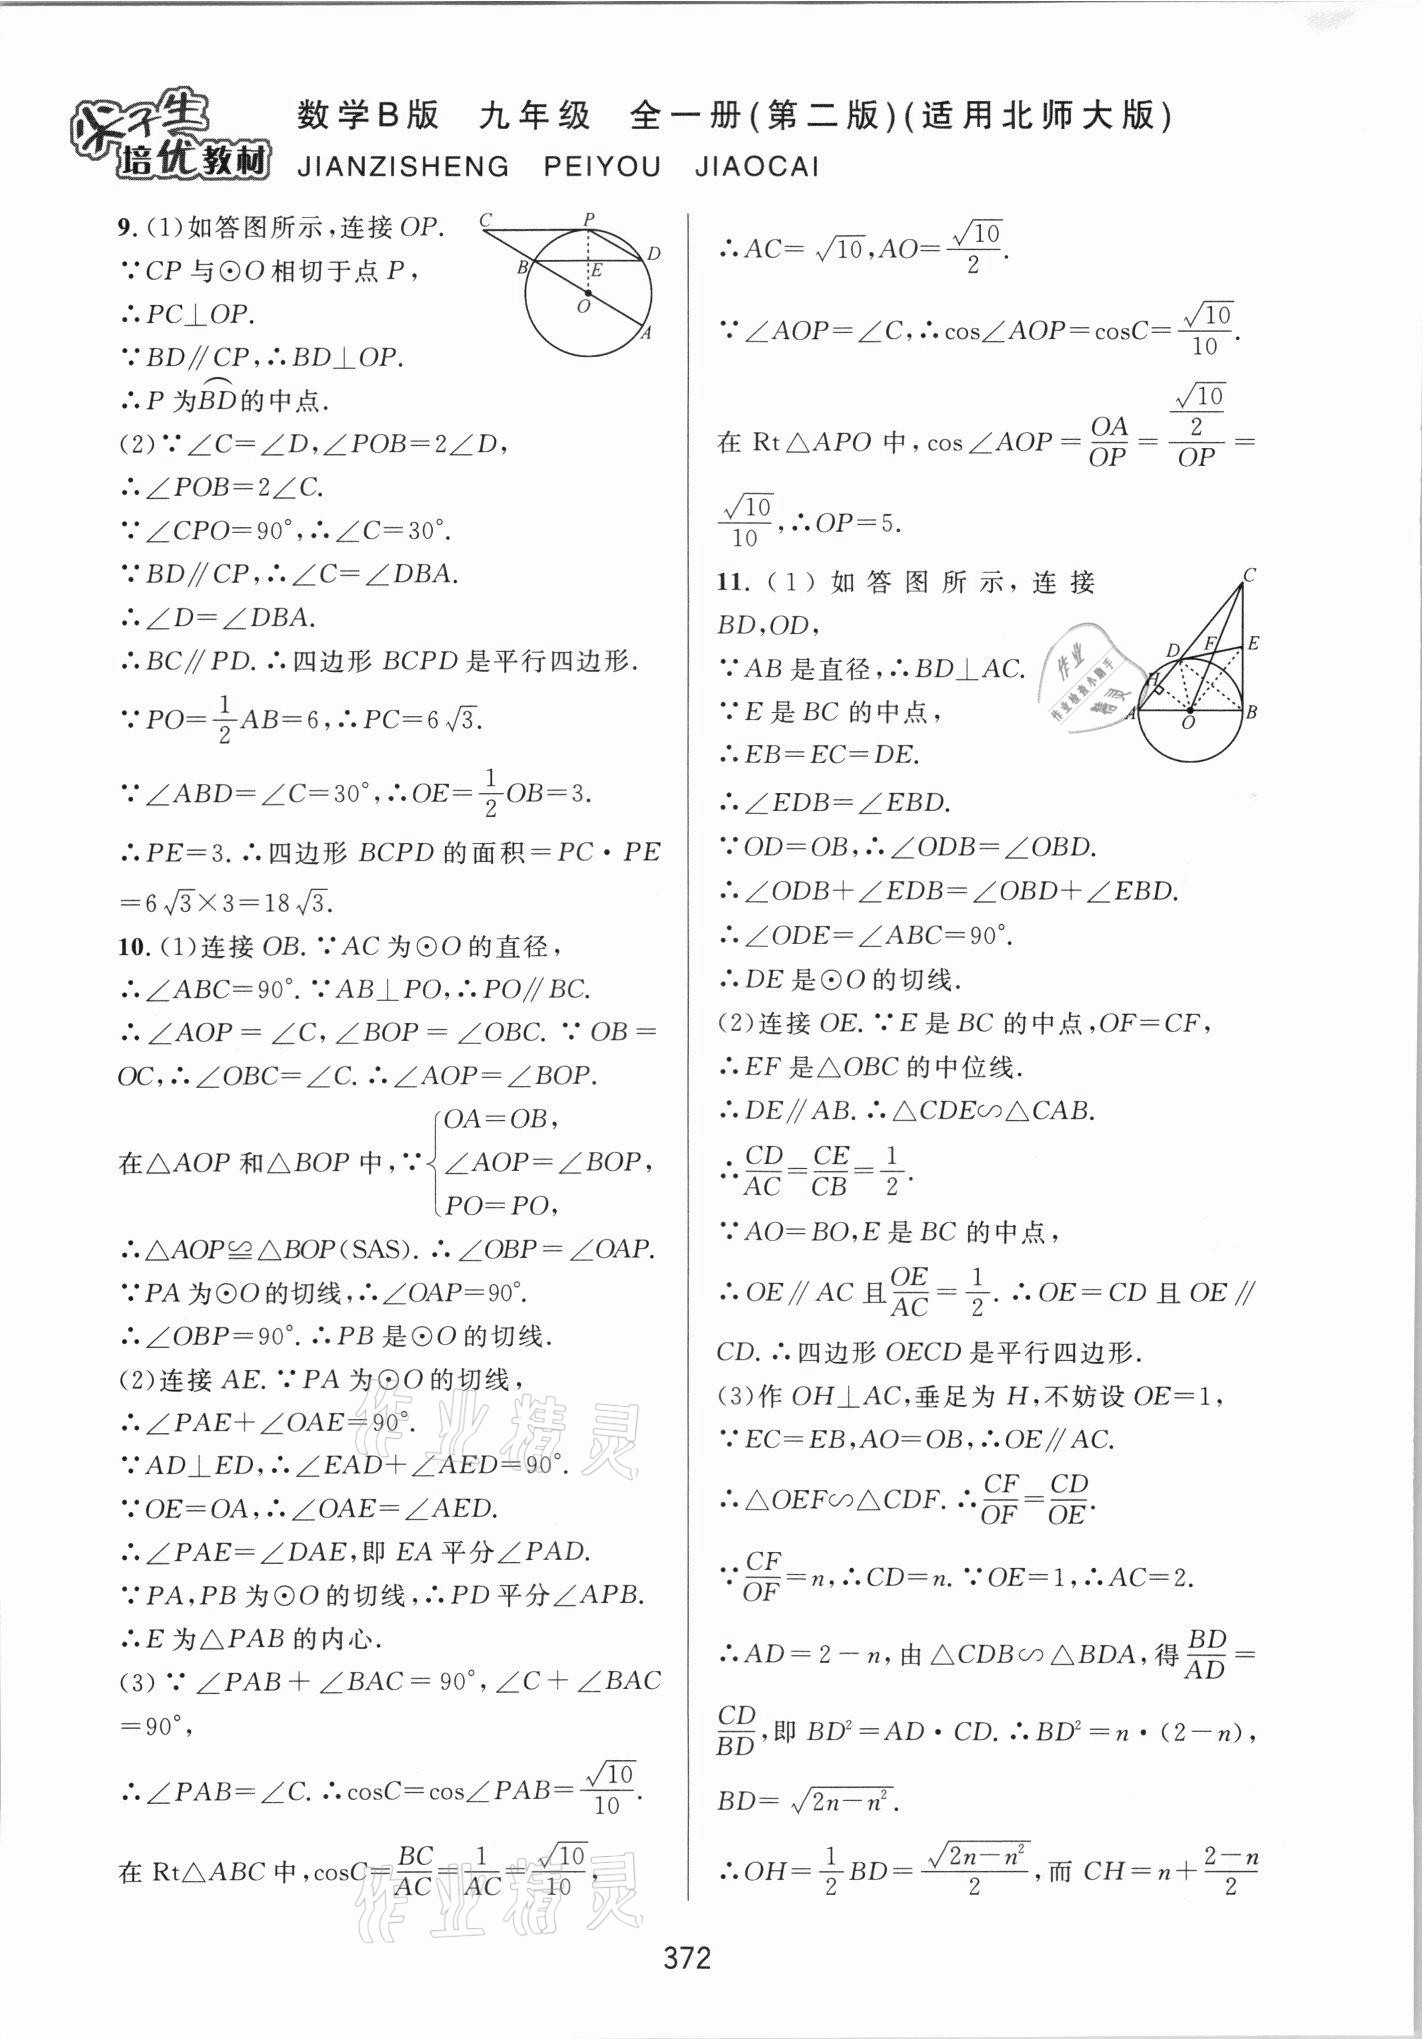 尖子生
培优教材
数学B版 九年级 全一册(第二版)(适用北师大版)
JIANZISHENG PEIYOU JIAOCAI
9.(1)如答图所示,连接OP.
∵CP与⊙O相切于点P,
∴PC⊥OP.
∵BD∥CP,∴BD⊥OP.
∴P为\overset{\frown}{BD}的中点.
(2)∵∠C=∠D,∠POB=2∠D,
∴∠POB=2∠C.
∵∠CPO=90°,∴∠C=30°.
∵BD∥CP,∴∠C=∠DBA.
∴∠D=∠DBA.
∴BC∥PD.∴四边形BCPD是平行四边形.
∵PO=\frac{1}{2}AB=6,∴PC=6√3.
∵∠ABD=∠C=30°,∴OE=\frac{1}{2}OB=3.
∴PE=3.∴四边形BCPD的面积=PC·PE
=6√3×3=18√3.
C P B E D O A
10.(1)连接OB.∵AC为⊙O的直径,
∴∠ABC=90°.∵AB⊥PO,∴PO∥BC.
∴∠AOP=∠C,∠BOP=∠OBC.∵OB=
OC,∴∠OBC=∠C.∴∠AOP=∠BOP.
在△AOP和△BOP中,∵{OA=OB,
∠AOP=∠BOP,
PO=PO,
∴△AOP≌△BOP(SAS).∴∠OBP=∠OAP.
∵PA为⊙O的切线,∴∠OAP=90°.
∴∠OBP=90°.∴PB是⊙O的切线.
(2)连接AE.∵PA为⊙O的切线,
∴∠PAE+∠OAE=90°.
∵AD⊥ED,∴∠EAD+∠AED=90°.
∵OE=OA,∴∠OAE=∠AED.
∴∠PAE=∠DAE,即EA平分∠PAD.
∵PA,PB为⊙O的切线,∴PD平分∠APB.
∴E为△PAB的内心.
(3)∵∠PAB+∠BAC=90°,∠C+∠BAC
=90°,
∴∠PAB=∠C.∴cosC=cos∠PAB=\frac{√10}{10}.
在Rt△ABC中,cosC=\frac{BC}{AC}=\frac{1}{AC}=\frac{√10}{10},
∴AC=√10,AO=\frac{√10}{2}.
∵∠AOP=∠C,∴cos∠AOP=cosC=\frac{√10}{10}.
在Rt△APO中,cos∠AOP=\frac{OA}{OP}=\frac{\frac{√10}{2}}{OP}=
\frac{√10}{10},∴OP=5.
11.(1)如答图所示,连接
BD,OD,
∵AB是直径,∴BD⊥AC.
∵E是BC的中点,
∴EB=EC=DE.
∴∠EDB=∠EBD.
∵OD=OB,∴∠ODB=∠OBD.
∴∠ODB+∠EDB=∠OBD+∠EBD.
∴∠ODE=∠ABC=90°.
∴DE是⊙O的切线.
C D F E H A O B
(2)连接OE.∵E是BC的中点,OF=CF,
∴EF是△OBC的中位线.
∴DE∥AB.∴△CDE∽△CAB.
∴\frac{CD}{AC}=\frac{CE}{CB}=\frac{1}{2}.
∵AO=BO,E是BC的中点,
∴OE∥AC且\frac{OE}{AC}=\frac{1}{2}.∴OE=CD且OE∥
CD.∴四边形OECD是平行四边形.
(3)作OH⊥AC,垂足为H,不妨设OE=1,
∵EC=EB,AO=OB,∴OE∥AC.
∴△OEF∽△CDF.∴\frac{CF}{OF}=\frac{CD}{OE}.
∵\frac{CF}{OF}=n,∴CD=n.∵OE=1,∴AC=2.
∴AD=2-n,由△CDB∽△BDA,得\frac{BD}{AD}=
\frac{CD}{BD},即BD²=AD·CD.∴BD²=n·(2-n),
BD=\sqrt{2n-n²}.
∴OH=\frac{1}{2}BD=\frac{\sqrt{2n-n²}}{2},而CH=n+\frac{2-n}{2}
作业
作业检查小助手
精灵
作业精灵
作业精灵
372